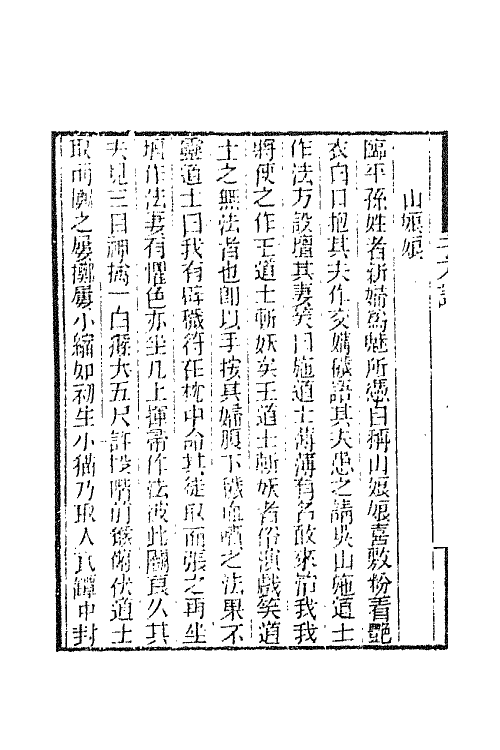 山娘娘
臨平孫姓者新婦為魅所憑自稱山娘娘喜敷粉着艷
衣白日抱其夫作交媾穢語其夫患之請吳山施道士
作法方設壇其妻笑曰施道士薄薄有名敢來治我我
將使之作王道士斬妖矣王道士斬妖者俗演戲笑道
士之無法者也即以手按其婦腹下穢血噴之法果不
靈道士曰我有辟穢符在枕中命其徒取而張之再坐
壇作法妻有懼色亦坐几上揮帚作法彼此鬭良久其
夫見三目神擒一白猻大五尺許投階前鏇俯伏道士
取而擲之屢擲屢小縮如初生小猫乃取入瓦罈中封